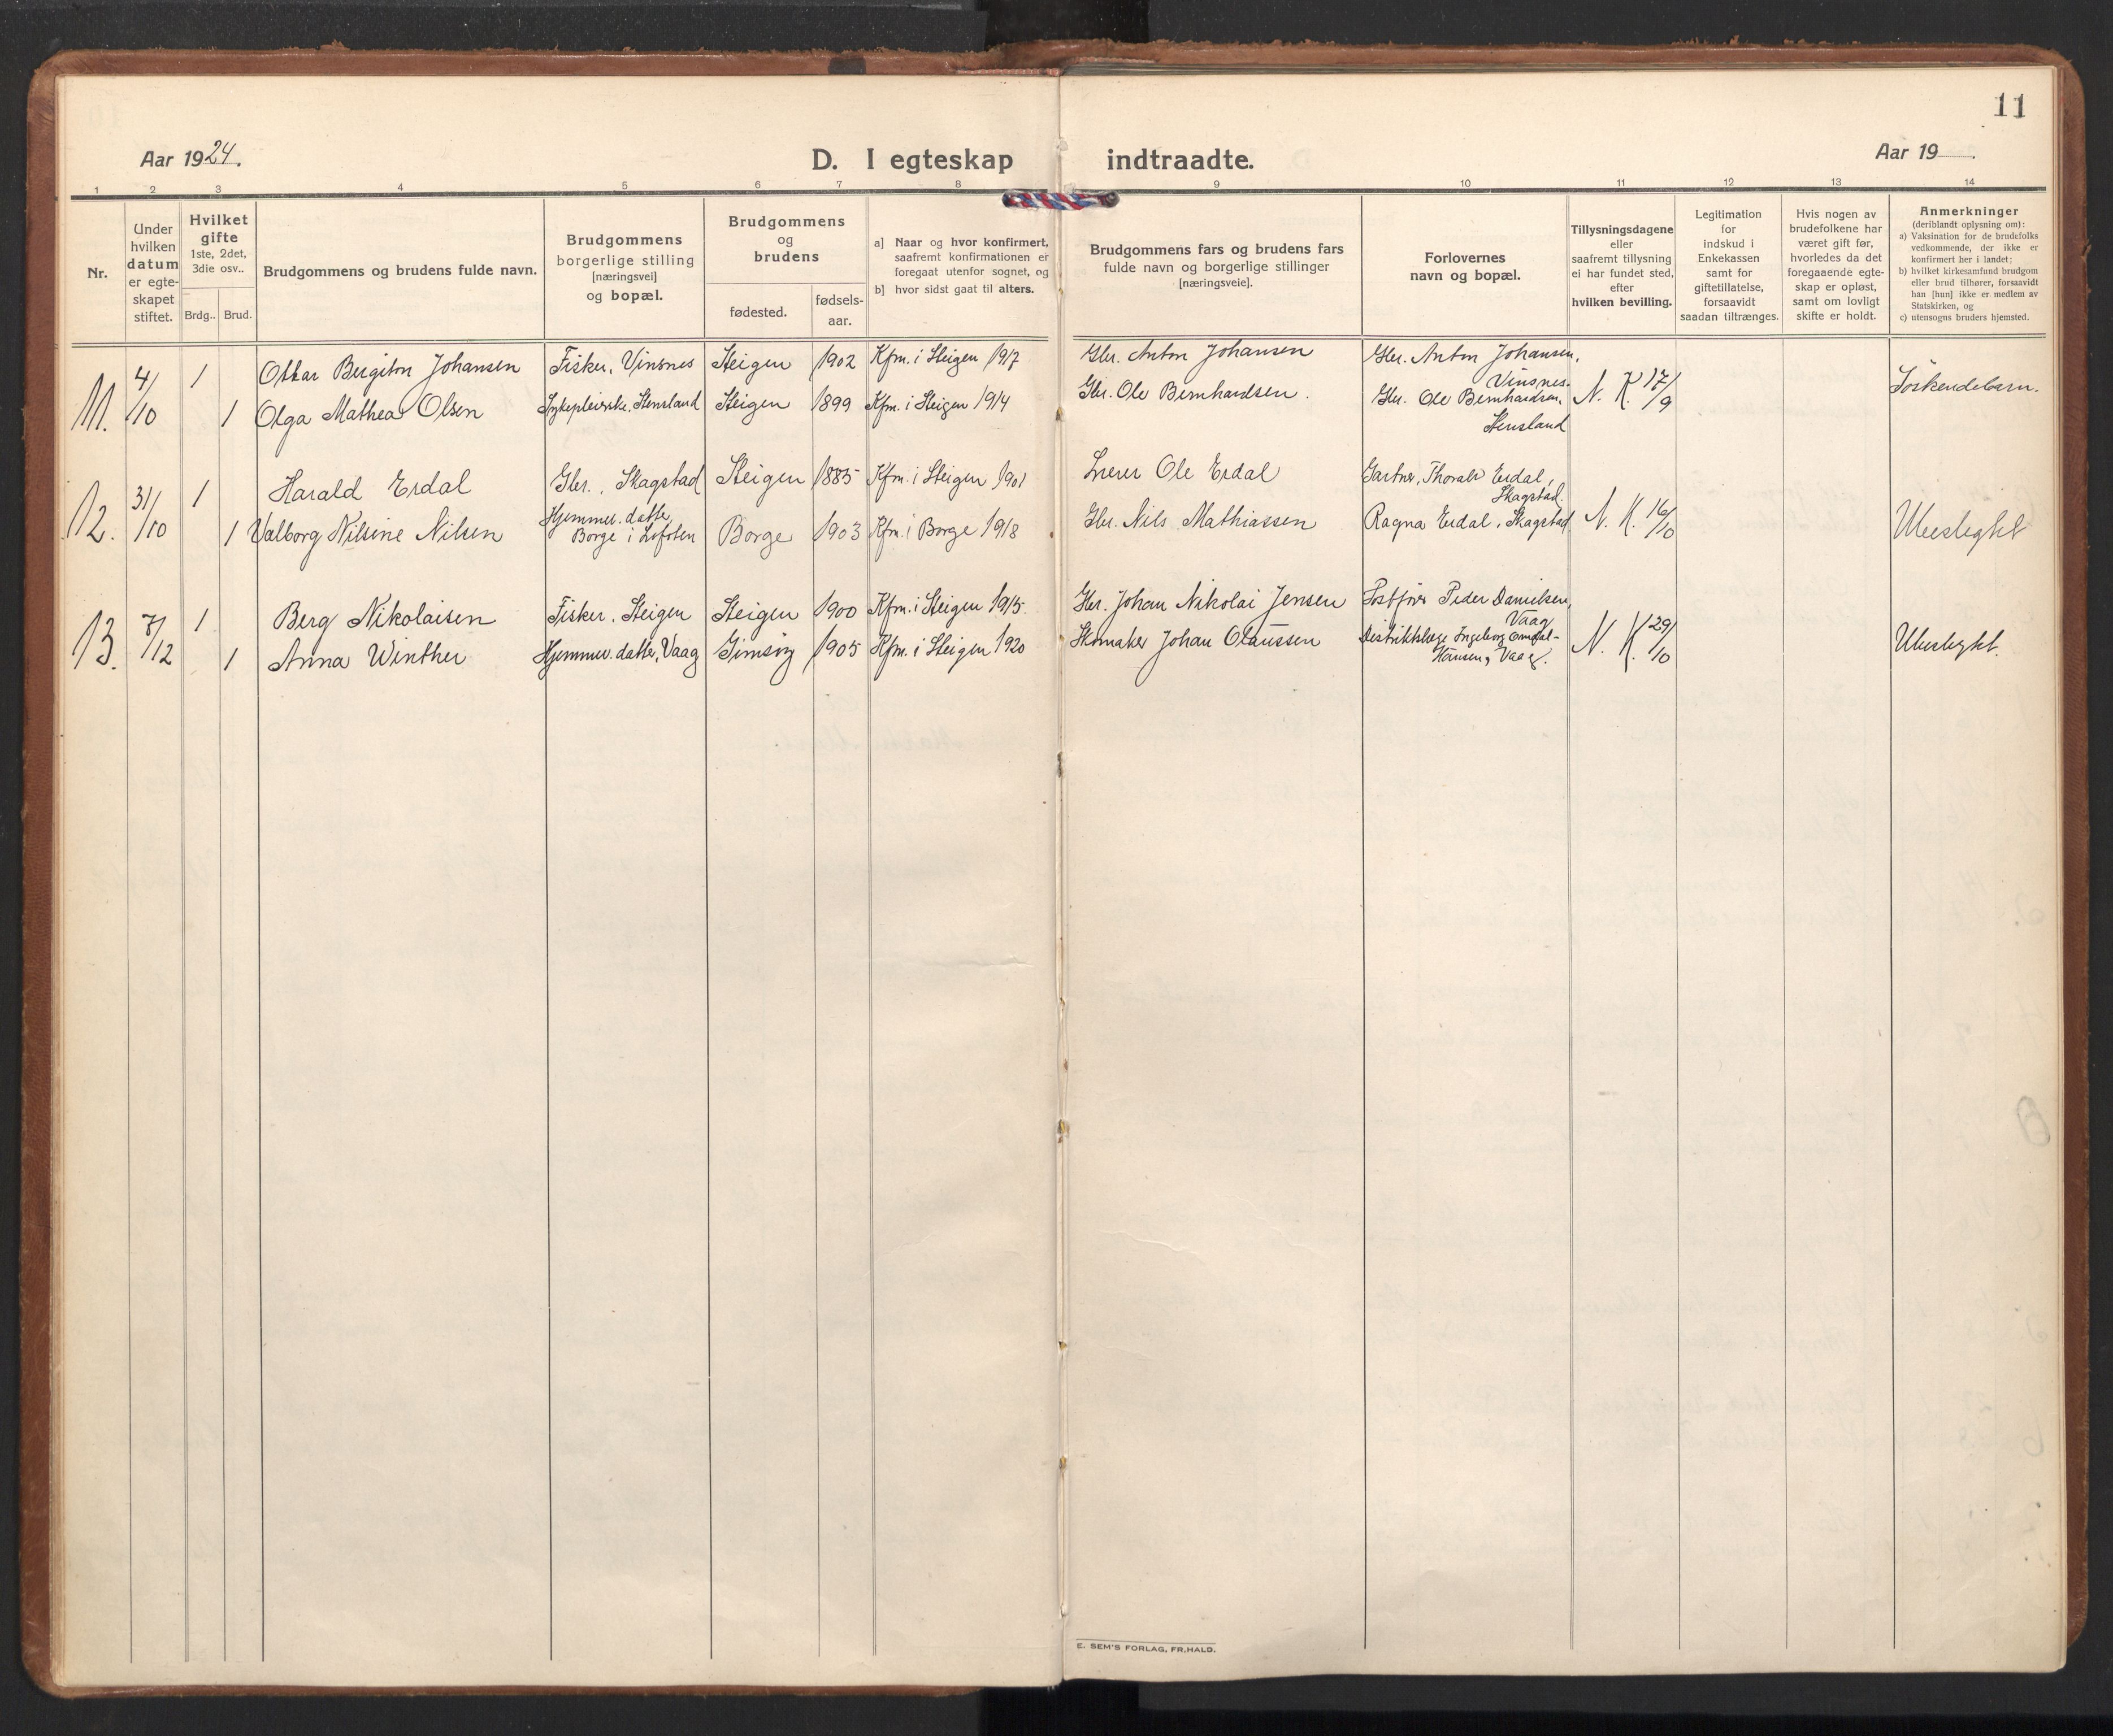 11
Aar 1924.
D. I egteskap indtraadte.
Aar 19
1 2 3 4 5 6 7 8 9 10 11 12 13 14
Nr.
Under
hvilken
datum
er egte-
skapet
stiftet.
Hvilket
gifte
1ste, 2det,
3die osv..
Brdg.. Brud.
Brudgommens og brudens fulde navn.
Brudgommens
borgerlige stilling
[næringsvei]
og bopæl.
Brudgommens
og
brudens
fødested.
fødsels-
aar.
a] Naar og hvor konfirmert,
saafremt konfirmationen er
foregaat utenfor sognet, og
b] hvor sidst gaat til alters.
Brudgommens fars og brudens fars
fulde navn og borgerlige stillinger
[næringsveie].
Forlovernes
navn og bopæl.
Tillysningsdagene
eller
saafremt tillysning
ei har fundet sted,
efter
hvilken bevilling.
Legitimation
for
indskud i
Enkekassen
samt for
giftetillatelse,
forsaavidt
saadan tiltrænges.
Hvis nogen av
brudefolkene har
været gift før,
hvorledes da det
foregaaende egte-
skap er opløst,
samt om lovligt
skifte er holdt.
Anmerkninger
(deriblandt oplysning om):
a) Vaksination for de brudefolks
vedkommende, der ikke er
konfirmert her i landet;
b) hvilket kirkesamfund brudgom
eller brud tilhører, forsaavidt
han [hun] ikke er medlem av
Statskirken, og
c) utensogns bruders hjemsted.
11. 4/10 1 Ottar Bergiton Johansen Fisker, Vinsnes Steigen 1902 Kfm. i Steigen 1917 Gbr. Anton Johansen Gbr. Anton Johansen,
Vinsnes.
N. K. 17/9 Søskendebarn.
1 Olga Mathea Olsen Sykepleierske, Stensland Steigen 1899 Kfm. i Steigen 1914 Gbr. Ole Bernhardsen. Gbr. Ole Bernhardsen,
Stensland
12. 31/10 1 Harald Erdal Gbr., Skagstad Steigen 1885 Kfm. i Steigen 1901 Lærer Ole Erdal Gartner, Thoralv Erdal,
Skagstad.
N. K. 16/10 Ubeslegtet
1 Valborg Nilsine Nilsen Hjemmev. datter,
Borge i Lofoten
Borge 1903 Kfm. i Borge 1918 Gbr. Nils Mathiassen Ragna Erdal, Skagstad
13. 7/12 1 Berg Nikolaisen Fisker, Steigen Steigen 1900 Kfm. i Steigen 1915. Gbr. Johan Nikolai Jensen Peder Danielsen,
Vaag
N. K. 29/10 Ubeslegtet.
1 Anna Winther Hjemmev. datter, Vaag Gimsøy 1905 Kfm. i Steigen 1920 Skomaker Johan Olaussen Distriktslæge Ingeborg
Hansen, Vaag.
E. SEM'S FORLAG, FR.HALD.